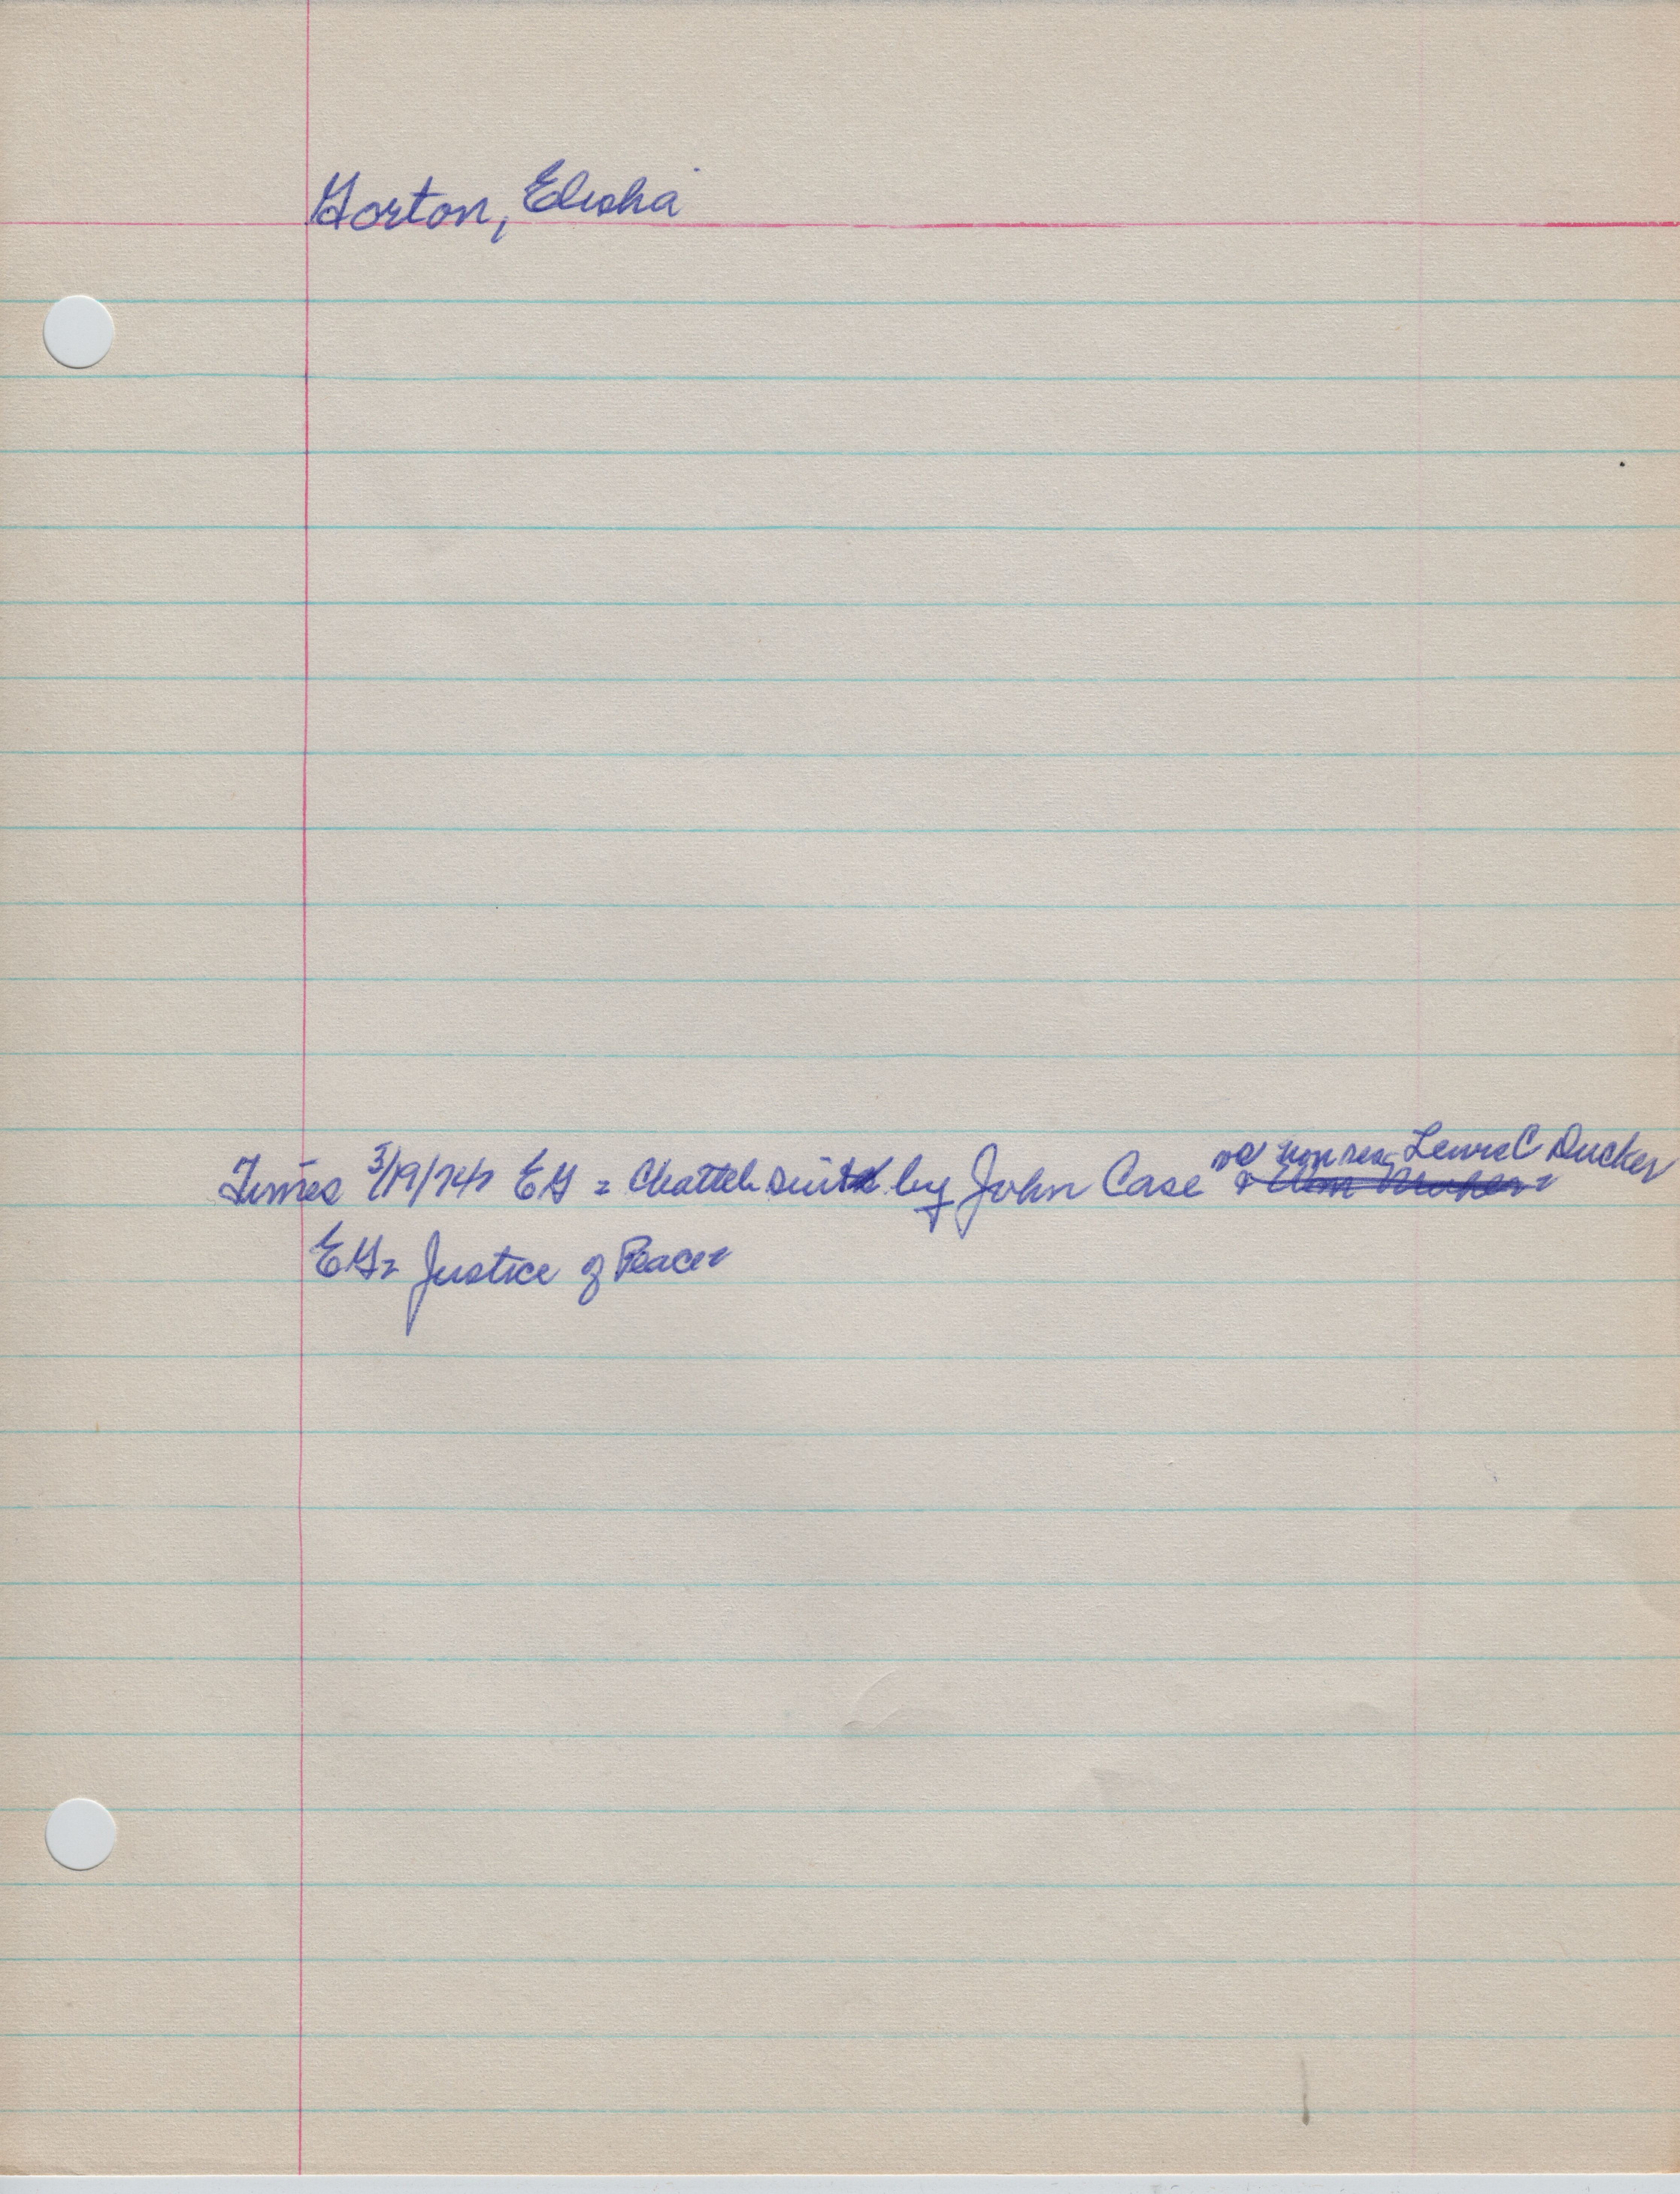 Gorton, Elisha
Times 3/19/74 EG = Chattel suit by John Case vs non res. Lewel C Ducker
EG = Justice of Peace